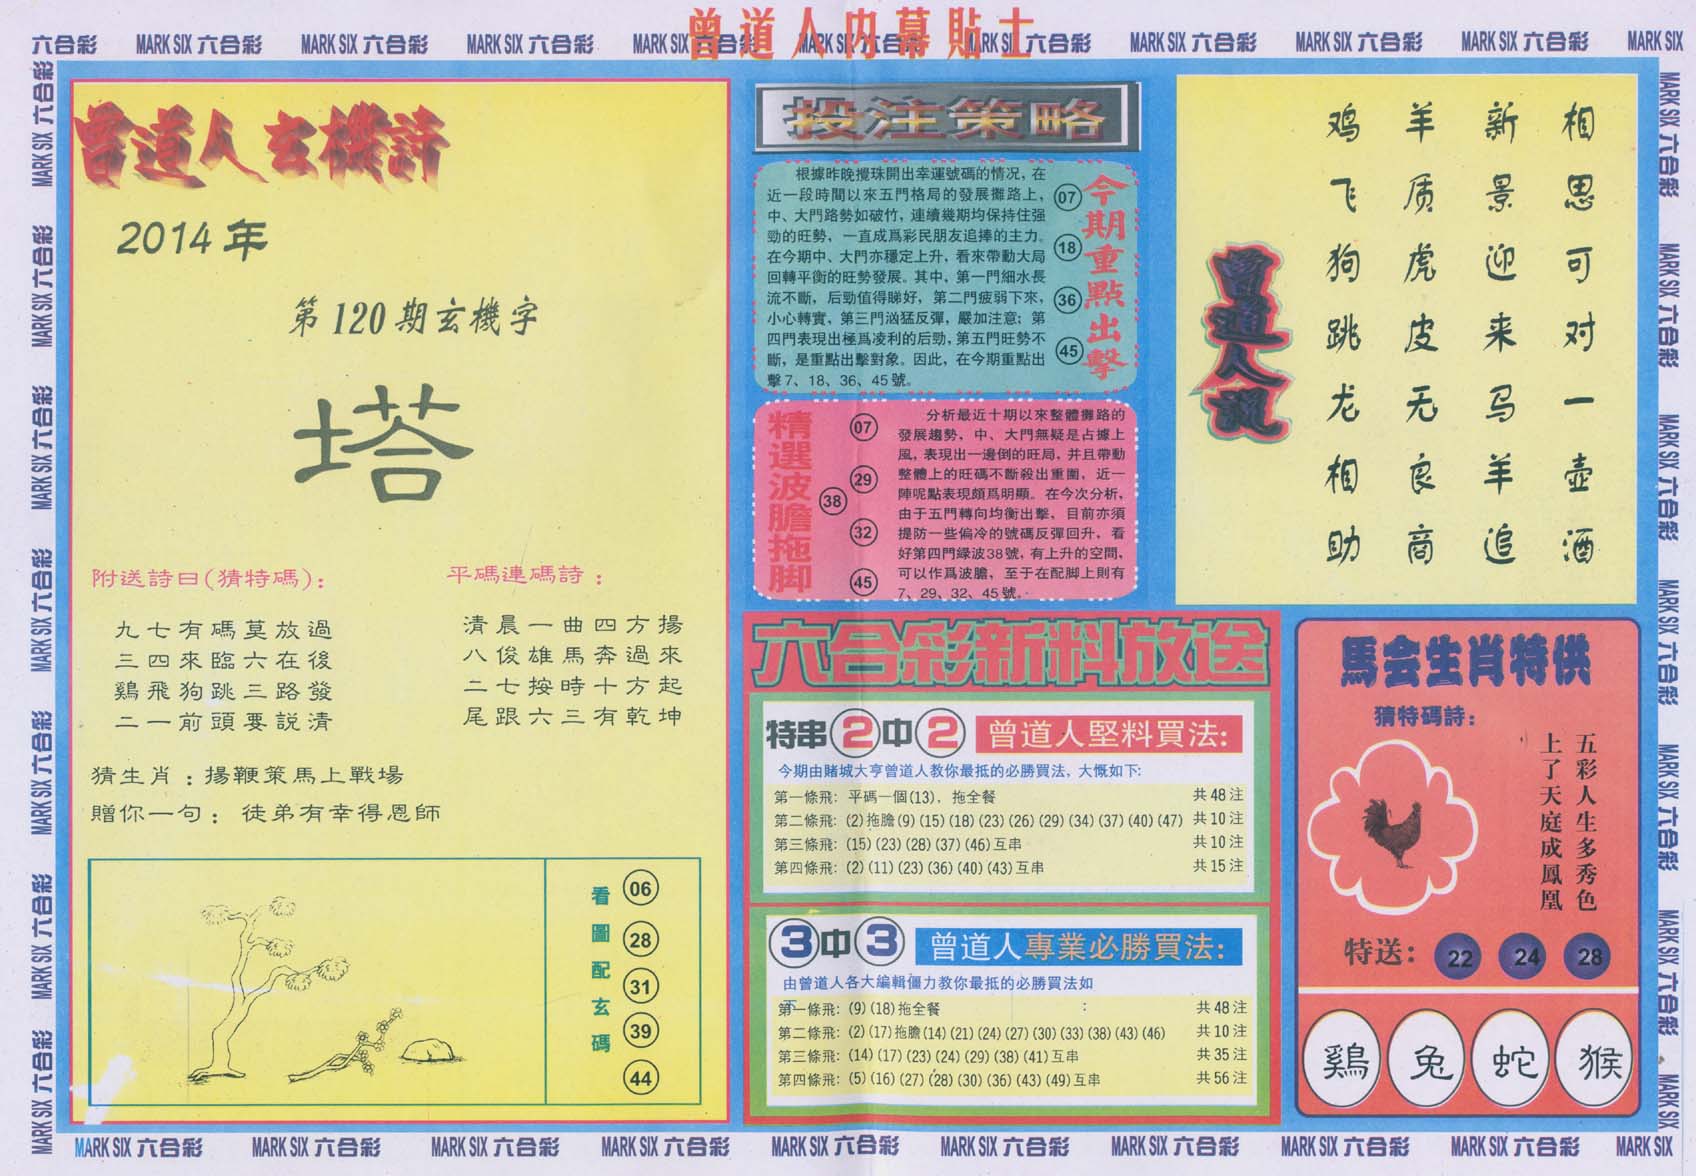 曾道人内幕貼士
六合彩 MARK SIX 六合彩 MARK SIX 六合彩 MARK SIX 六合彩 MARK SIX 六合彩 MARK SIX 六合彩 MARK SIX 六合彩 MARK SIX 六合彩 MARK SIX 六合彩 MARK SIX 六合彩 MARK SIX
曾道人玄機詩
2014年
第120期玄機字
塔
附送詩曰(猜特碼):
九七有碼莫放過
三四來臨六在後
鷄飛狗跳三路發
二一前頭要説清
平碼連碼詩:
清晨一曲四方揚
八俊雄馬奔過來
二七按時十方起
尾跟六三有乾坤
猜生肖:揚鞭策馬上戰場
贈你一句:徒弟有幸得恩師
看圖配玄碼
06
28
31
39
44
投注策略
根據昨晚攪珠開出幸運號碼的情况,在
近一段時間以來五門格局的發展攤路上,
中、大門路勢如破竹,連續幾期均保持住强
勁的旺勢,一直成爲彩民朋友追捧的主力。
在今期中、大門亦穩定上升,看來帶動大局
回轉平衡的旺勢發展。其中,第一門細水長
流不斷,后勁值得睇好,第二門疲弱下來,
小心轉實,第三門汹猛反彈,嚴加注意;第
四門表現出極爲凌利的后勁,第五門旺勢不
斷,是重點出擊對象。因此,在今期重點出
擊7、18、36、45號。
07
18
36
45
今期重點出擊
精選波膽拖脚
07
29
38
32
45
分析最近十期以來整體攤路的
發展趨勢,中、大門無疑是占據上
風,表現出一邊倒的旺局,并且帶動
整體上的旺碼不斷殺出重圍,近一
陣呢點表現頗爲明顯。在今次分析,
由于五門轉向均衡出擊,目前亦須
提防一些偏冷的號碼反彈回升,看
好第四門緑波38號,有上升的空問,
可以作爲波膽,至于在配脚上則有
7、29、32、45號。
六合彩新料放送
特串2中2 曾道人堅料買法:
今期由賭城大亨曾道人教你最抵的必勝買法,大概如下:
第一條飛: 平碼一個(13),拖全餐 共48注
第二條飛: (2)拖膽(9)(15)(18)(23)(26)(29)(34)(37)(40)(47) 共10注
第三條飛: (15)(23)(28)(37)(46)互串 共10注
第四條飛: (2)(11)(23)(36)(40)(43)互串 共15注
3中3 曾道人專業必勝買法:
由曾道人各大編輯僵力教你最抵的必勝買法如
下
第一條飛: (9)(18)拖全餐 : 共48注
第二條飛: (2)(17)拖膽(14)(21)(24)(27)(30)(33)(38)(43)(46) 共10注
第三條飛: (14)(17)(23)(24)(29)(38)(41)互串 共35注
第四條飛: (5)(16)(27)(28)(30)(36)(43)(49)互串 共56注
曾道人説
相思可对一壶酒
新景迎来马羊追
羊质虎皮无良商
鸡飞狗跳龙相助
馬会生肖特供
猜特碼詩:
五彩人生多秀色
上了天庭成鳳凰
特送: 22 24 28
鷄 兔 蛇 猴
MARK SIX 六合彩 MARK SIX 六合彩 MARK SIX 六合彩 MARK SIX 六合彩 MARK SIX 六合彩 MARK SIX 六合彩 MARK SIX 六合彩 MARK SIX 六合彩 MARK SIX 六合彩 MARK SIX
MARK SIX 六合彩 MARK SIX 六合彩 MARK SIX 六合彩 MARK SIX 六合彩 MARK SIX 六合彩 MARK SIX 六合彩 MARK SIX 六合彩
MARK SIX 六合彩 MARK SIX 六合彩 MARK SIX 六合彩 MARK SIX 六合彩 MARK SIX 六合彩 MARK SIX 六合彩 MARK SIX